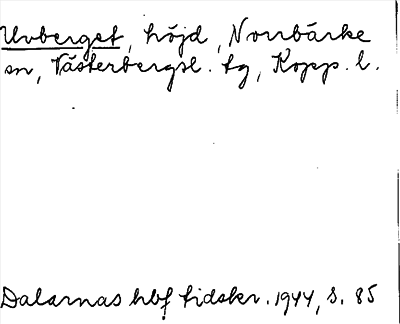 Uvberget, höjd, Norrbärke
sn, Västerbergsl. tg, Kopp. l.
Dalarnas hbf tidskr. 1944, s. 85